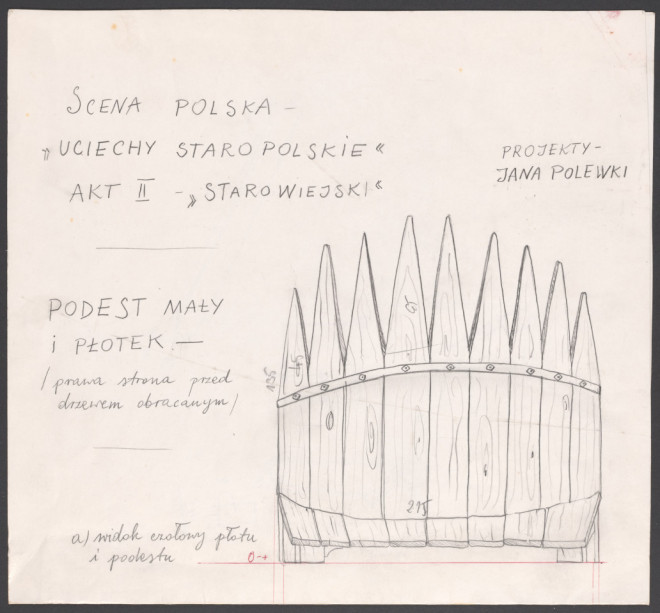 SCENA POLSKA –
„UCIECHY STAROPOLSKIE“
AKT II – „STAROWIEJSKI“
PROJEKTY –
JANA POLEWKI
PODEST MAŁY
i PŁOTEK –
/prawa strona przed
drzewem obracanym/
135
215
a) widok czołowy płotu
i podestu
0